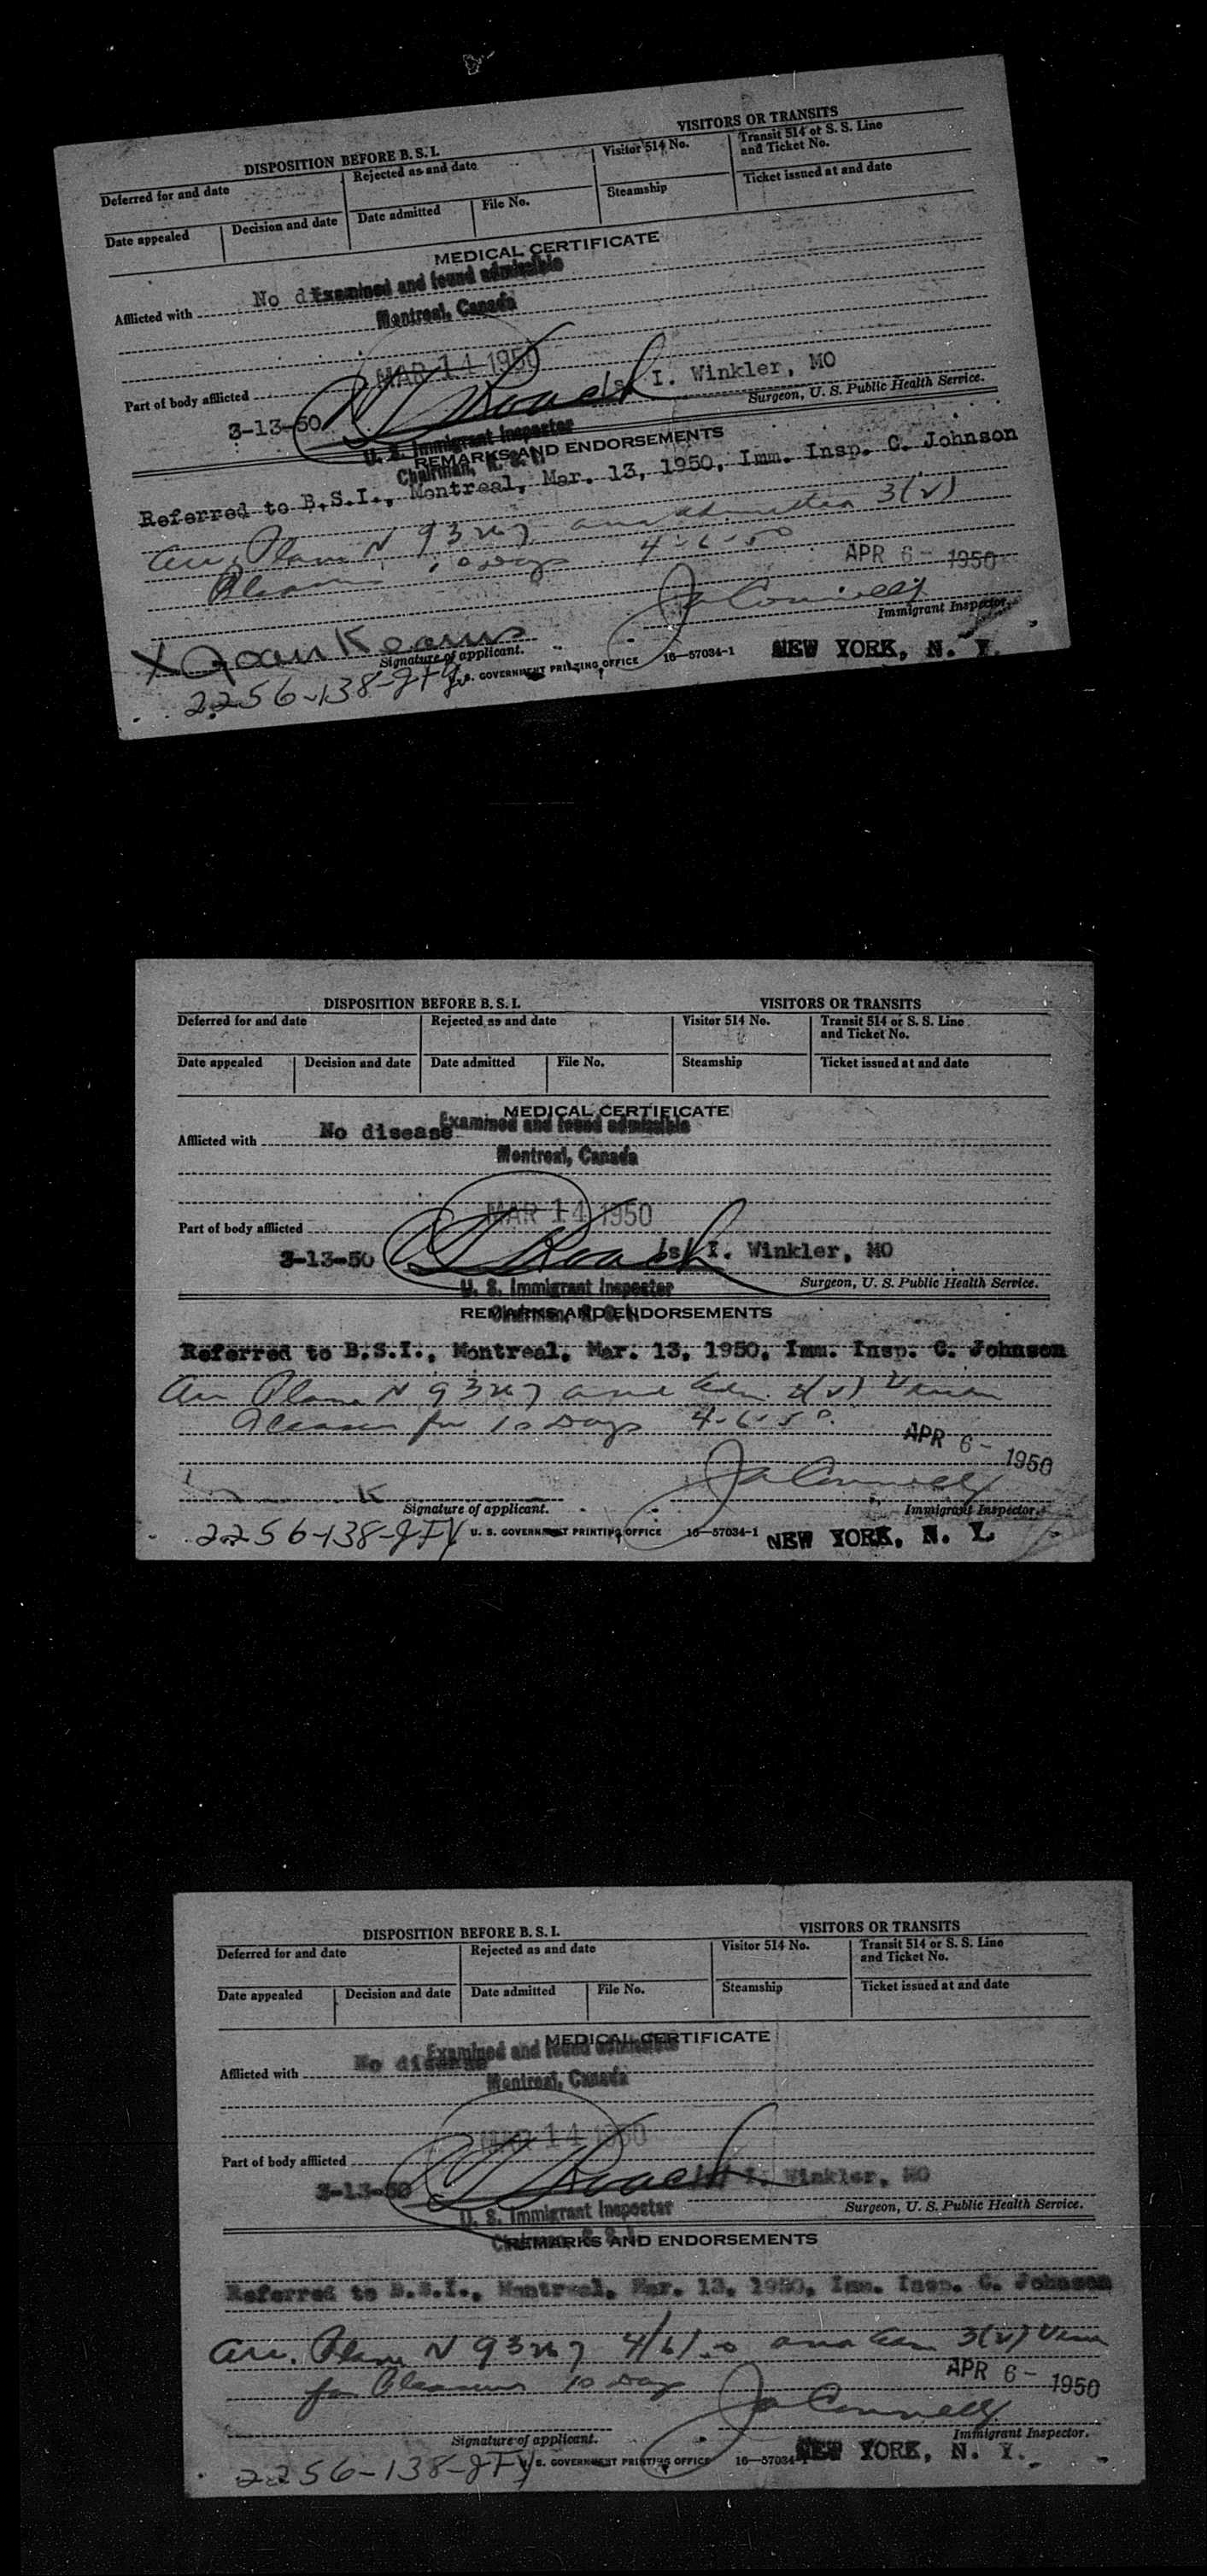 DISPOSITION BEFORE B. S. I.
VISITORS OR TRANSITS
Deferred for and date
Rejected as and date
Visitor 514 No.
Transit 514 or S. S. Line
and Ticket No.
Date appealed
Decision and date
Date admitted
File No.
Steamship
Ticket issued at and date
MEDICAL CERTIFICATE
Examined and found admissible
Afflicted with No
Montreal, Canada
MAR 14 1950
Part of body afflicted
3-13-50 Roach /s/ I. Winkler, MO
Surgeon, U. S. Public Health Service.
U. S. Immigrant Inspector
Chairman, B. S. I.
REMARKS AND ENDORSEMENTS
Referred to B.S.I., Montreal, Mar. 13, 1950, Imm. Insp. C. Johnson
Arr. Plane N 93267 and admitted 3(2)
10 Days 4-6-50
APR 6- 1950
Immigrant Inspector.
X Joan Kearns
Signature of applicant.
U. S. GOVERNMENT PRINTING OFFICE 16—57034-1
NEW YORK, N. Y.
2256-138-
DISPOSITION BEFORE B. S. I.
VISITORS OR TRANSITS
Deferred for and date
Rejected as and date
Visitor 514 No.
Transit 514 or S. S. Line
and Ticket No.
Date appealed
Decision and date
Date admitted
File No.
Steamship
Ticket issued at and date
MEDICAL CERTIFICATE
Examined and found admissible
Afflicted with No disease
Montreal, Canada
MAR 14 1950
Part of body afflicted
3-13-50 Roach /s/ I. Winkler, MO
Surgeon, U. S. Public Health Service.
U. S. Immigrant Inspector
REMARKS AND ENDORSEMENTS
Referred to B.S.I., Montreal, Mar. 13, 1950, Imm. Insp. C. Johnson
Arr Plane N 93267 and Adm. 3(2)
Pleasure for 10 Days 4-6-50.
APR 6- 1950
Signature of applicant.
Immigrant Inspector.
2256-138-
U. S. GOVERNMENT PRINTING OFFICE 16—57034-1
NEW YORK, N. Y.
DISPOSITION BEFORE B. S. I.
VISITORS OR TRANSITS
Deferred for and date
Rejected as and date
Visitor 514 No.
Transit 514 or S. S. Line
and Ticket No.
Date appealed
Decision and date
Date admitted
File No.
Steamship
Ticket issued at and date
MEDICAL CERTIFICATE
Examined and found admissible
Afflicted with No disease
Montreal, Canada
MAR 14 1950
Part of body afflicted
3-13-50 Roach /s/ I. Winkler, MO
Surgeon, U. S. Public Health Service.
U. S. Immigrant Inspector
Chairman, B. S. I.
REMARKS AND ENDORSEMENTS
Referred to B.S.I., Montreal, Mar. 13, 1950, Imm. Insp. C. Johnson
Arr. Plane N 93267 4/6/50 and Adm 3(2)
for Pleasure 10 Days
APR 6- 1950
Signature of applicant.
Immigrant Inspector.
2256-138-
U. S. GOVERNMENT PRINTING OFFICE 16—57034-1
NEW YORK, N. Y.